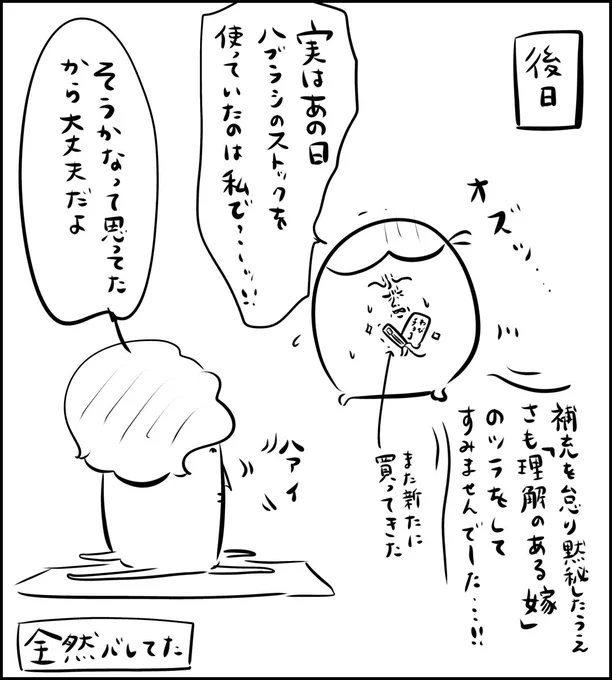 後日
オズッ…
実はあの日
ハブラシのストックを
使っていたのは私で、……!!
そうかなって思ってた
から大丈夫だよ
補充を怠り黙秘したうえ
さも「理解のある嫁」
のツラをして
すみませんでした…!!
また新たに
買ってきた
ハアイ
全然バレてた